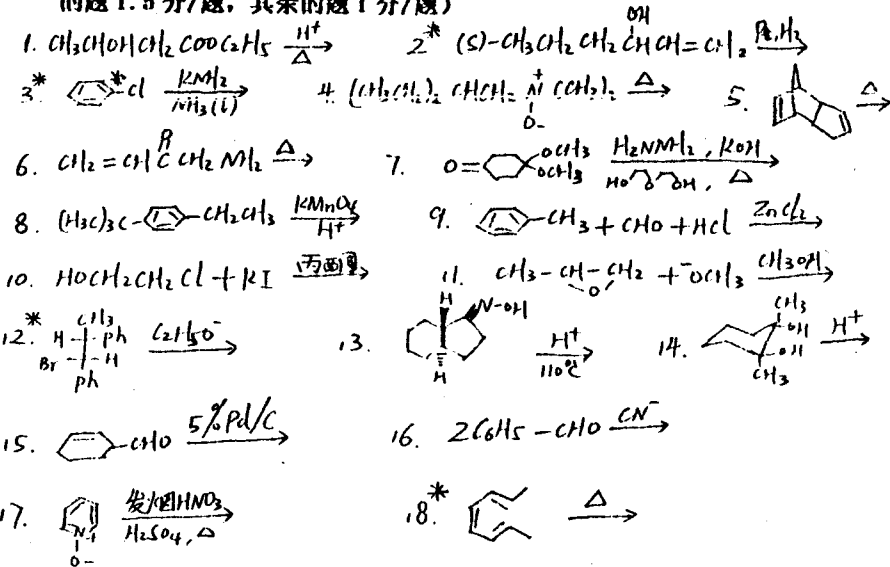 的题1.5分/题，其余的题1分/题）
1. CH3CHOHCH2COOC2H5 H+ △
2* (S)-CH3CH2CH2CHCH=CH2 OH Pt,H2
3* *Cl KNH2 NH3(l)
4. (CH3CH2)2CHCH2N+(CH3)2 O- △
5. △
6. CH2=CHCCH2NH2 O △
7. O= OCH3 OCH3 H2NNH2, KOH HO O OH, △
8. (H3C)3C- -CH2CH3 KMnO4 H+
9. -CH3+CHO+HCl ZnCl2
10. HOCH2CH2Cl+KI 丙酮
11. CH3-CH-CH2 O +-OCH3 CH3OH
12* CH3 H Ph Br H Ph C2H5O-
13. H N-OH H H+ 110℃
14. CH3 OH OH CH3 H+
15. -CHO 5%Pd/C
16. 2C6H5-CHO CN-
17. N+ O- 发烟HNO3 H2SO4, △
18.* △